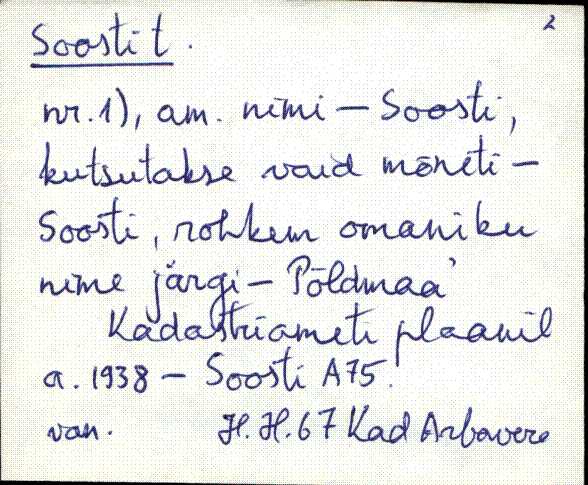 2
Soosti t.
nr. 1), am. nimi — Soosti,
kutsutakse vaid mōneti —
Soosti, rohkem omaniku
nime järgi — Põldmaa'
Kadastriameti plaanil
a. 1938 — Soosti A75.
van. H. H. 67 Kad Arbavere